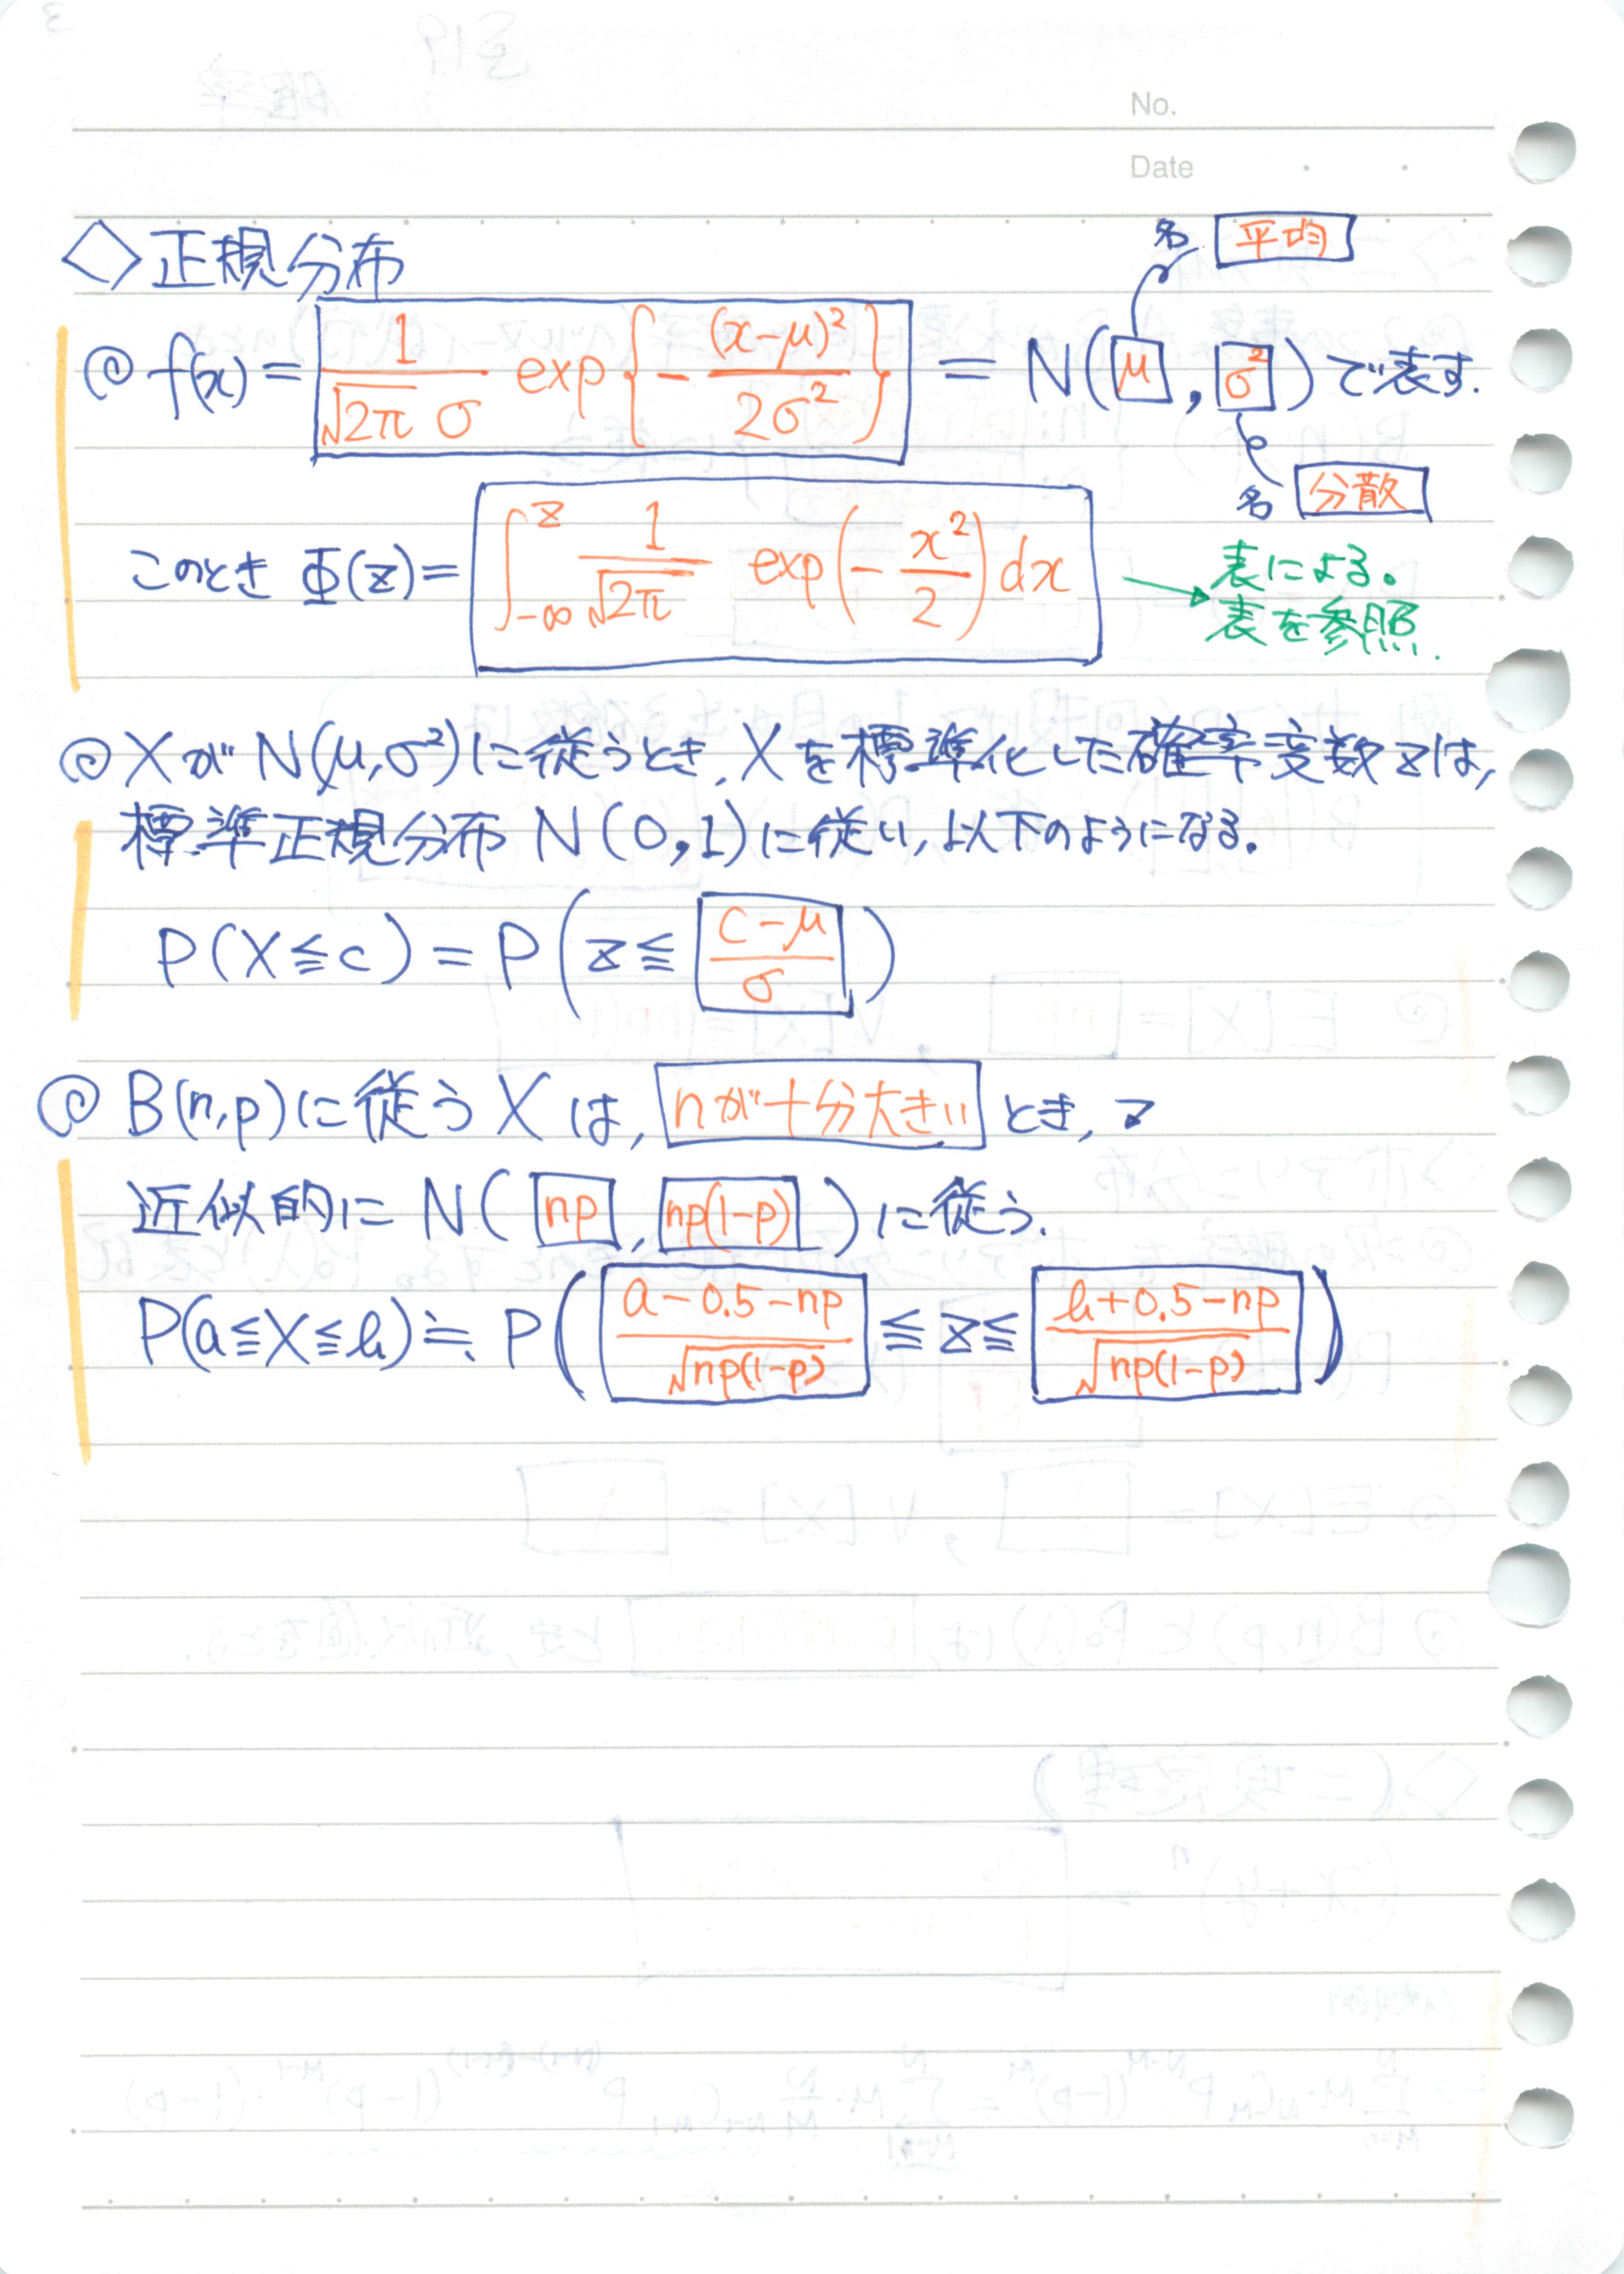 No.
Date
◇正規分布
名 平均
@ f(x) = 1/(√2π σ) exp{-(x-μ)²/2σ²} = N(μ, σ²)で表す.
名 分散
このとき Φ(z) = ∫_{-∞}^{z} 1/√2π exp(-x²/2) dx
→ 表による。
表を参照.
@ XがN(μ,σ²)に従うとき, Xを標準化した確率変数zは,
標準正規分布 N(0,1)に従い, 以下のようになる.
P(X≦c) = P(z≦(c-μ)/σ)
@ B(n,p)に従うXは, nが十分大きい とき,
近似的に N(np, np(1-p))に従う.
P(a≦X≦b)≒P((a-0.5-np)/√np(1-p) ≦ z ≦ (b+0.5-np)/√np(1-p))